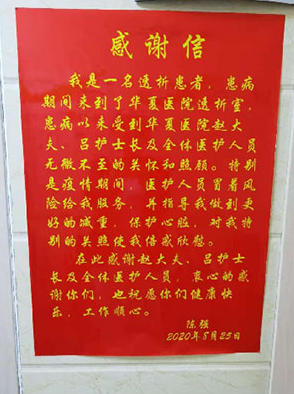 感谢信
我是一名透析患者，患病
期间来到了华夏医院透析室，
患病以来受到华夏医院赵大
夫、吕护士长及全体医护人员
无微不至的关怀和照顾。特别
是疫情期间，医护人员冒着风
险给我服务，并指导我做到更
好的减重，保护心脏，对我特
别的关照使我倍感欣慰。
在此感谢赵大夫、吕护士
长及全体医护人员，衷心的感
谢你们，也祝愿你们健康快
乐，工作顺心。
陈强
2020年8月25日